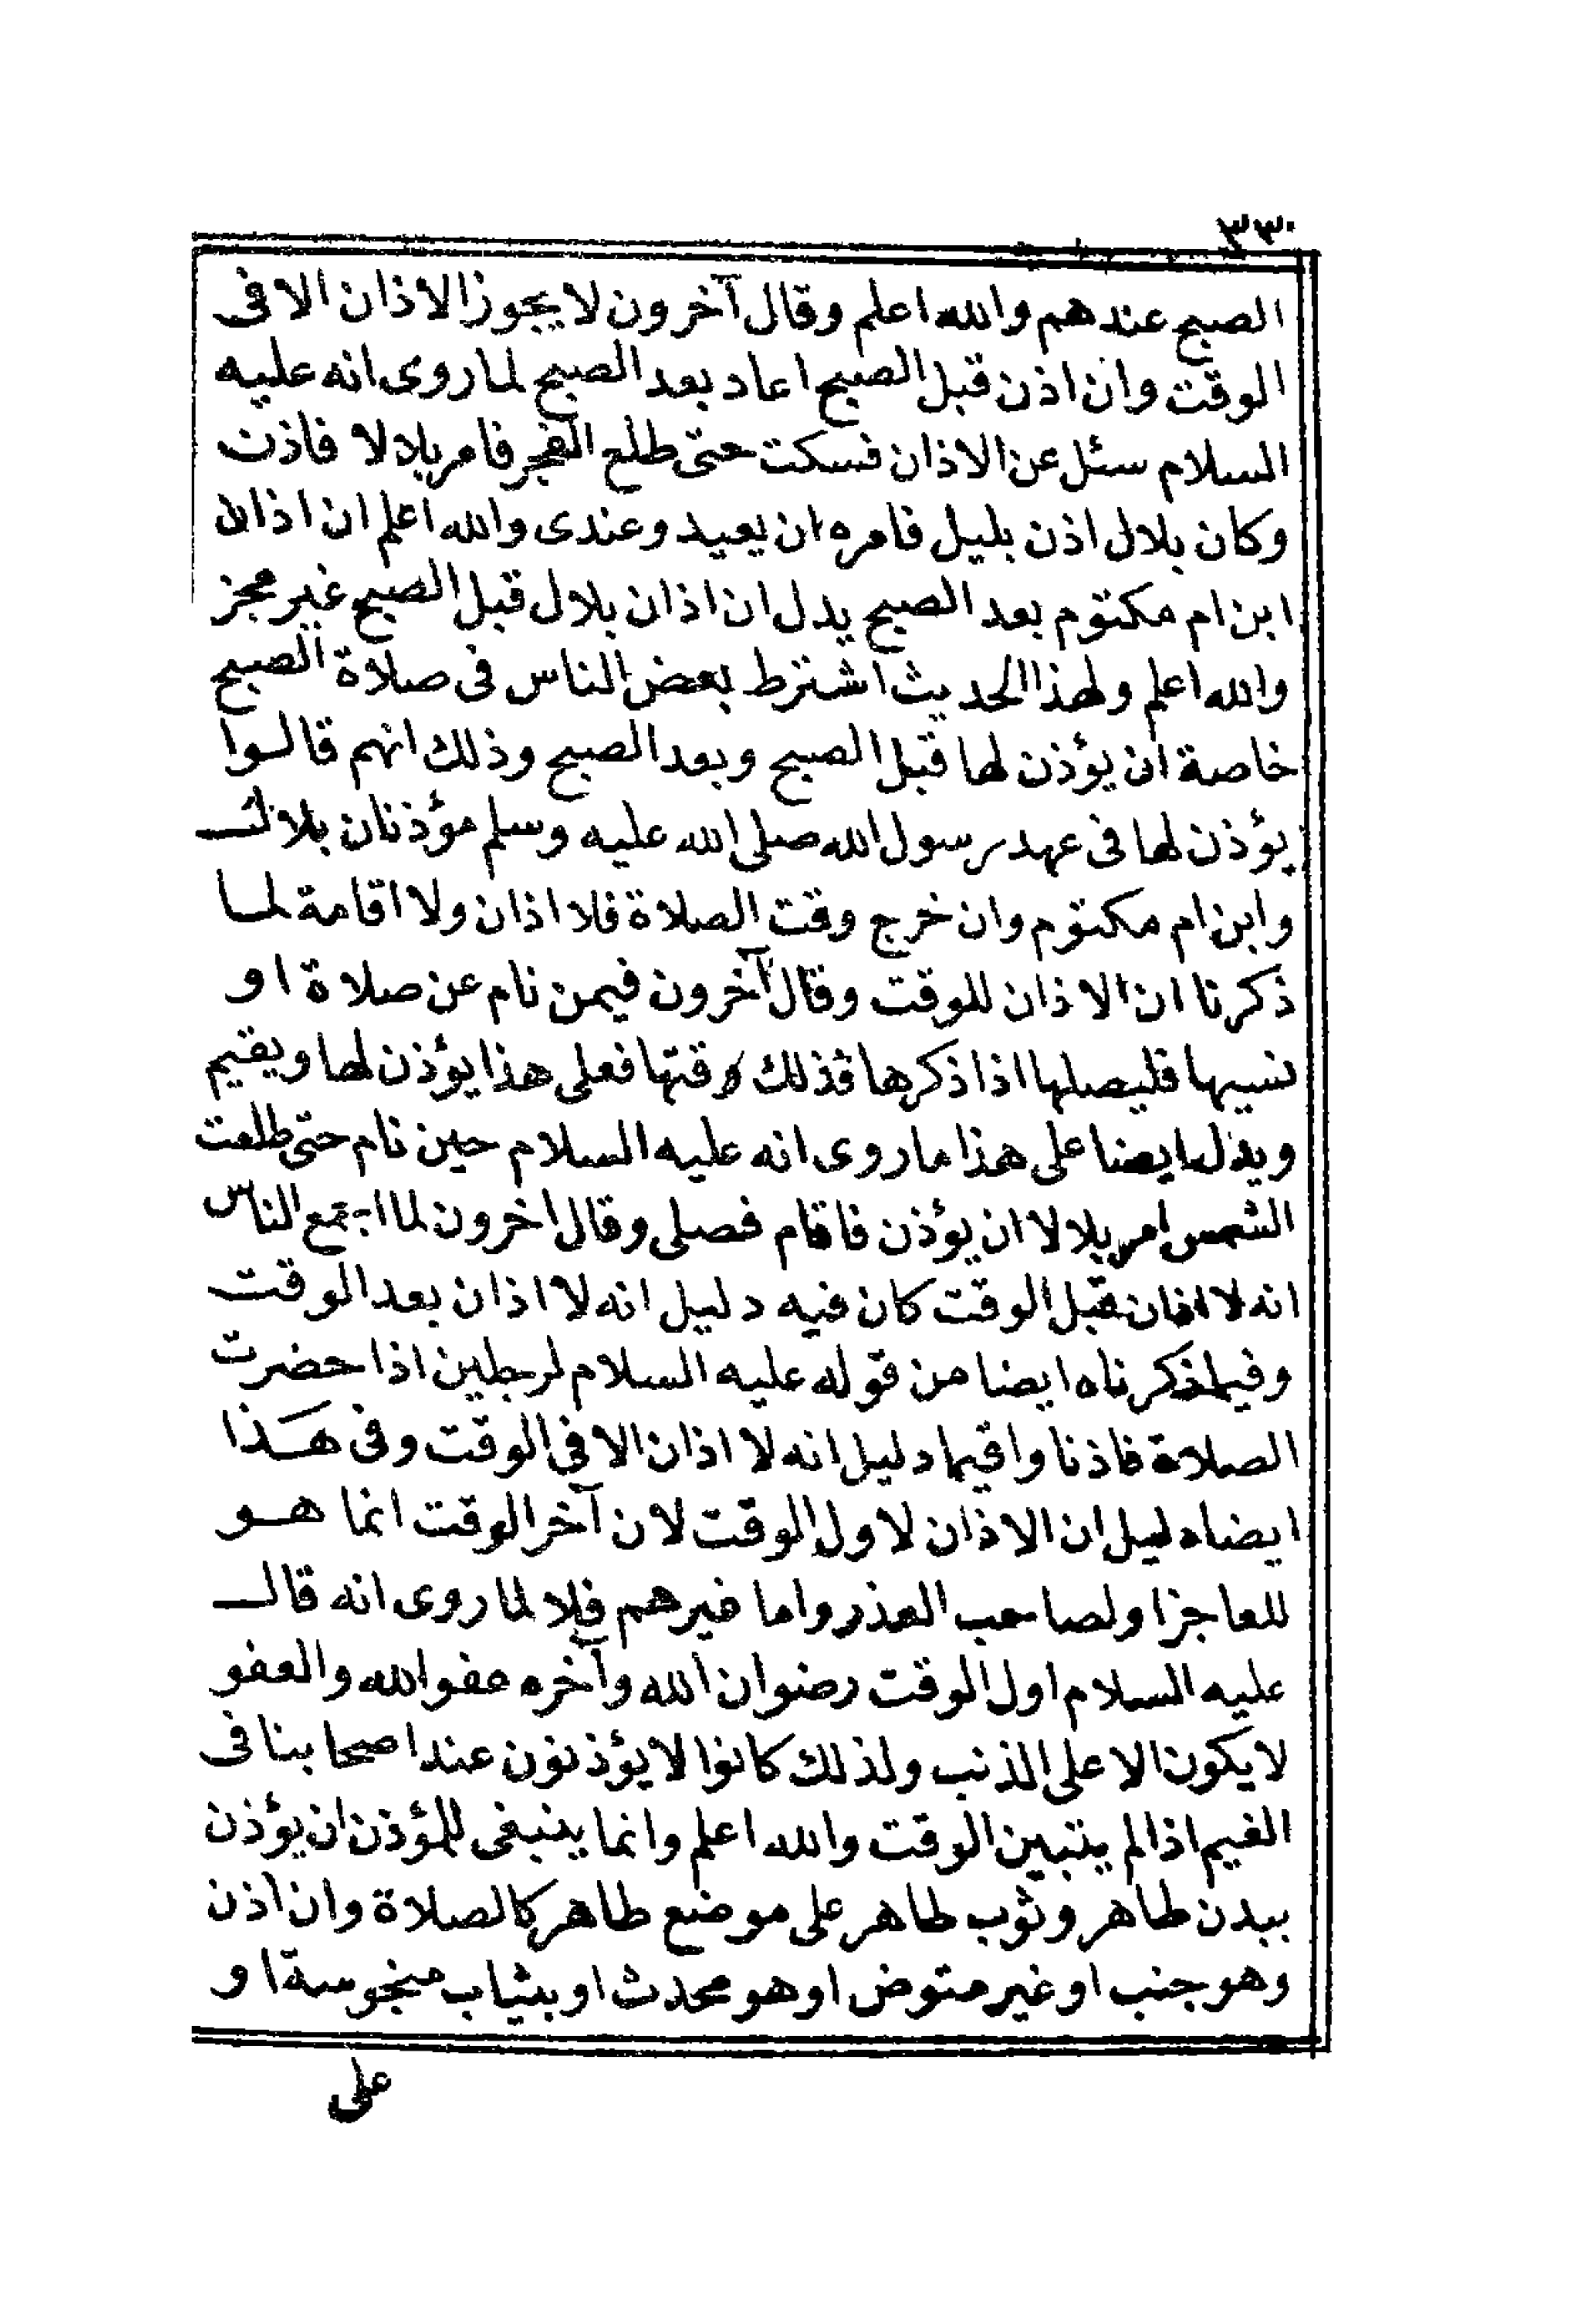 ٣٣٠
الصبح عندهم والله اعلم وقال آخرون لا يجوز الاذان الا فى
الوقت وان اذن قبل الصبح اعاد بعد الصبح لما روى انه عليه
السلام سئل عن الاذان فسكت حتى طلع الفجر فامر بلالا فاذن
وكان بلال اذن بليل فامره ان يعيد وعندى والله اعلم ان اذان
ابن ام مكتوم بعد الصبح يدل ان اذان بلال قبل الصبح غير مجز
والله اعلم ولهذا الحديث اشترط بعض الناس فى صلاة الصبح
خاصة ان يؤذن لها قبل الصبح وبعد الصبح وذلك انهم قالوا
يؤذن لها فى عهد رسول الله صلى الله عليه وسلم مؤذنان بلال
وابن ام مكتوم وان خرج وقت الصلاة فلا اذان ولا اقامة لما
ذكرنا ان الاذان للوقت وقال آخرون فيمن نام عن صلاة او
نسيها فليصلها اذا ذكرها فذلك وقتها فعلى هذا يؤذن لها ويقيم
ويدل ايضا على هذا ما روى انه عليه السلام حين نام حتى طلعت
الشمس امر بلالا ان يؤذن فاقام فصلى وقال آخرون لما اجتمع الناس
انه لا اذان قبل الوقت كان فيه دليل انه لا اذان بعد الوقت
وفيما ذكرناه ايضا من قوله عليه السلام لرجلين اذا حضرت
الصلاة فاذنا واقيما دليل انه لا اذان الا فى الوقت وفى هذا
ايضا دليل ان الاذان لاول الوقت لان آخر الوقت انما هو
للعاجز او لصاحب العذر واما غيرهم فلا لما روى انه قال
عليه السلام اول الوقت رضوان الله وآخره عفو الله والعفو
لا يكون الا على الذنب ولذلك كانوا لا يؤذنون عند اصحابنا فى
الغيم اذا لم يتبين الوقت والله اعلم وانما ينبغى للمؤذن ان يؤذن
ببدن طاهر وثوب طاهر على موضع طاهر كالصلاة وان اذن
وهو جنب او غير متوض او هو محدث او بثياب منجوسة او
على